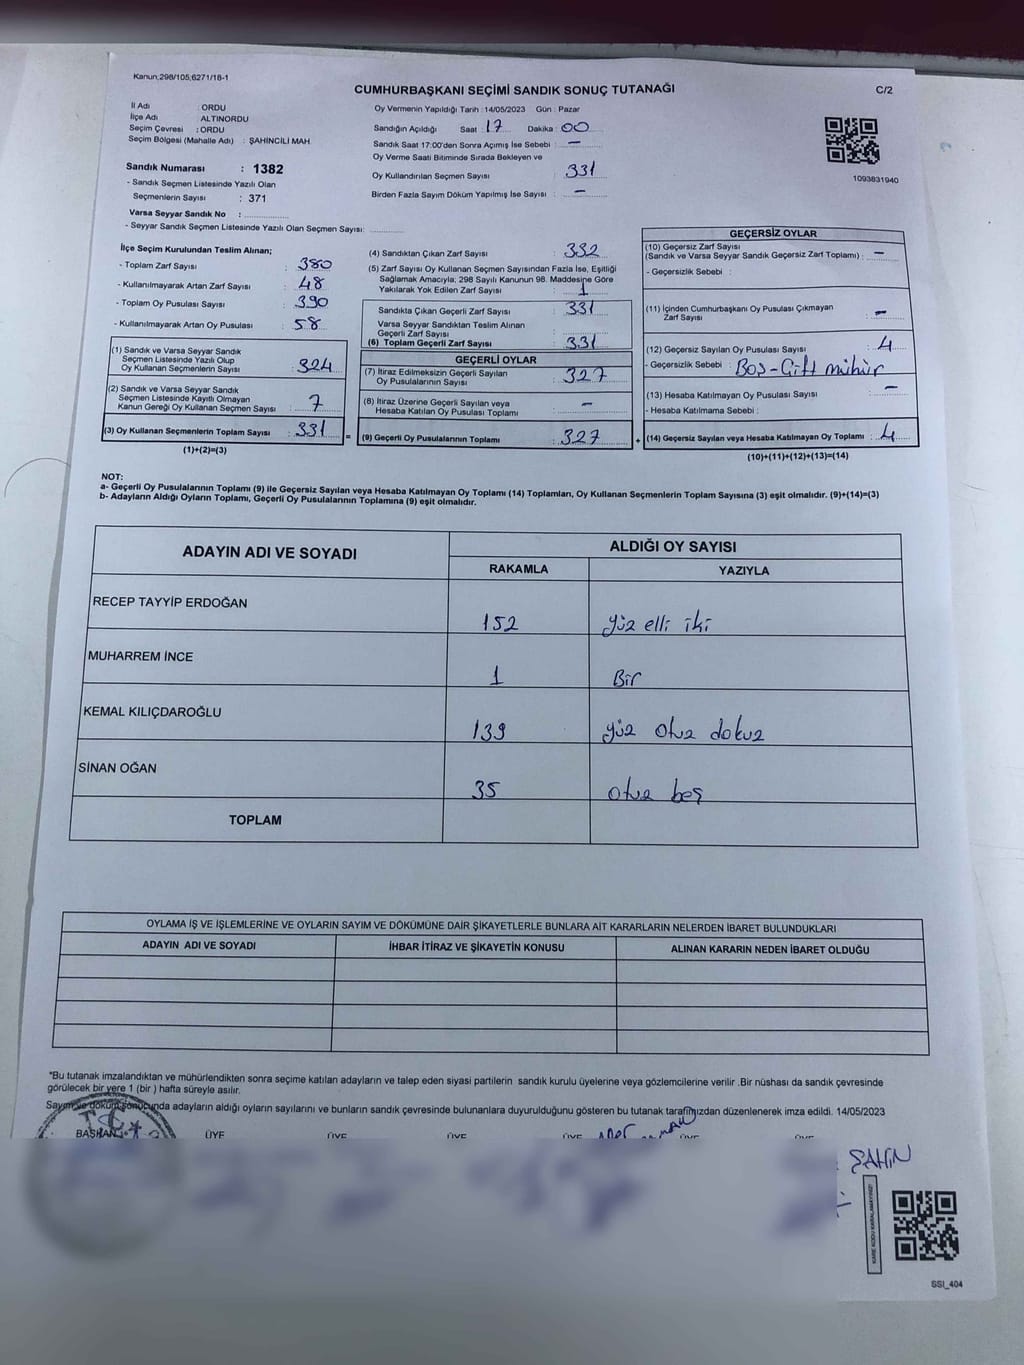 Kanun,298/105,6271/18-1
CUMHURBAŞKANI SEÇİMİ SANDIK SONUÇ TUTANAĞI
C/2
İl Adı : ORDU
İlçe Adı : ALTINORDU
Seçim Çevresi : ORDU
Seçim Bölgesi (Mahalle Adı) : ŞAHİNCİLİ MAH.
Sandık Numarası : 1382
- Sandık Seçmen Listesinde Yazılı Olan
Seçmenlerin Sayısı : 371
Varsa Seyyar Sandık No :
- Seyyar Sandık Seçmen Listesinde Yazılı Olan Seçmen Sayısı:
Oy Vermenin Yapıldığı Tarih : 14/05/2023 Gün : Pazar
Sandığın Açıldığı Saat : 17 Dakika : 00
Sandık Saat 17:00'den Sonra Açımış İse Sebebi : -
Oy Verme Saati Bitiminde Sırada Bekleyen ve
Oy Kullandırılan Seçmen Sayısı : 331
Birden Fazla Sayım Döküm Yapılmış İse Sayısı : -
1093831940
İlçe Seçim Kurulundan Teslim Alınan;
- Toplam Zarf Sayısı : 380
- Kullanılmayarak Artan Zarf Sayısı : 48
- Toplam Oy Pusulası Sayısı : 390
- Kullanılmayarak Artan Oy Pusulası : 58
(1) Sandık ve Varsa Seyyar Sandık
Seçmen Listesinde Yazılı Olup
Oy Kullanan Seçmenlerin Sayısı : 324
(2) Sandık ve Varsa Seyyar Sandık
Seçmen Listesinde Kayıtlı Olmayan
Kanun Gereği Oy Kullanan Seçmen Sayısı : 7
(3) Oy Kullanan Seçmenlerin Toplam Sayısı : 331
(1)+(2)=(3)
(4) Sandıktan Çıkan Zarf Sayısı : 332
(5) Zarf Sayısı Oy Kullanan Seçmen Sayısından Fazla İse, Eşitliği
Sağlamak Amacıyla; 298 Sayılı Kanunun 98. Maddesine Göre
Yakılarak Yok Edilen Zarf Sayısı : 1
Sandıkta Çıkan Geçerli Zarf Sayısı : 331
Varsa Seyyar Sandıktan Teslim Alınan
Geçerli Zarf Sayısı :
(6) Toplam Geçerli Zarf Sayısı : 331
GEÇERLİ OYLAR
(7) İtiraz Edilmeksizin Geçerli Sayılan
Oy Pusulalarının Sayısı : 327
(8) İtiraz Üzerine Geçerli Sayılan veya
Hesaba Katılan Oy Pusulası Toplamı : -
= (9) Geçerli Oy Pusulalarının Toplamı : 327 +
GEÇERSİZ OYLAR
(10) Geçersiz Zarf Sayısı
(Sandık ve Varsa Seyyar Sandık Geçersiz Zarf Toplamı) : -
- Geçersizlik Sebebi :
(11) İçinden Cumhurbaşkanı Oy Pusulası Çıkmayan
Zarf Sayısı : -
(12) Geçersiz Sayılan Oy Pusulası Sayısı : 4
- Geçersizlik Sebebi : Boş-Çift mühür
(13) Hesaba Katılmayan Oy Pusulası Sayısı : -
- Hesaba Katılmama Sebebi :
(14) Geçersiz Sayılan veya Hesaba Katılmayan Oy Toplamı : 4
(10)+(11)+(12)+(13)=(14)
NOT:
a- Geçerli Oy Pusulalarının Toplamı (9) ile Geçersiz Sayılan veya Hesaba Katılmayan Oy Toplamı (14) Toplamları, Oy Kullanan Seçmenlerin Toplam Sayısına (3) eşit olmalıdır. (9)+(14)=(3)
b- Adayların Aldığı Oyların Toplamı, Geçerli Oy Pusulalarının Toplamına (9) eşit olmalıdır.
ADAYIN ADI VE SOYADI
ALDIĞI OY SAYISI
RAKAMLA YAZIYLA
RECEP TAYYİP ERDOĞAN 152 yüz elli iki
MUHARREM İNCE 1 Bir
KEMAL KILIÇDAROĞLU 139 yüz otuz dokuz
SİNAN OĞAN 35 otuz beş
TOPLAM
OYLAMA İŞ VE İŞLEMLERİNE VE OYLARIN SAYIM VE DÖKÜMÜNE DAİR ŞİKAYETLERLE BUNLARA AİT KARARLARIN NELERDEN İBARET BULUNDUKLARI
ADAYIN ADI VE SOYADI İHBAR İTİRAZ VE ŞİKAYETİN KONUSU ALINAN KARARIN NEDEN İBARET OLDUĞU
*Bu tutanak imzalandıktan ve mühürlendikten sonra seçime katılan adayların ve talep eden siyasi partilerin sandık kurulu üyelerine veya gözlemcilerine verilir .Bir nüshası da sandık çevresinde
görülecek bir yere 1 (bir ) hafta süreyle asılır.
Sayım ve döküm sonucunda adayların aldığı oyların sayılarını ve bunların sandık çevresinde bulunanlara duyurulduğunu gösteren bu tutanak tarafımızdan düzenlenerek imza edildi. 14/05/2023
BAŞKAN ÜYE ÜYE ÜYE ÜYE ÜYE ÜYE
T.C.
ŞAHİN
KARE KODU KARALAMAYINIZ!
SSI_404